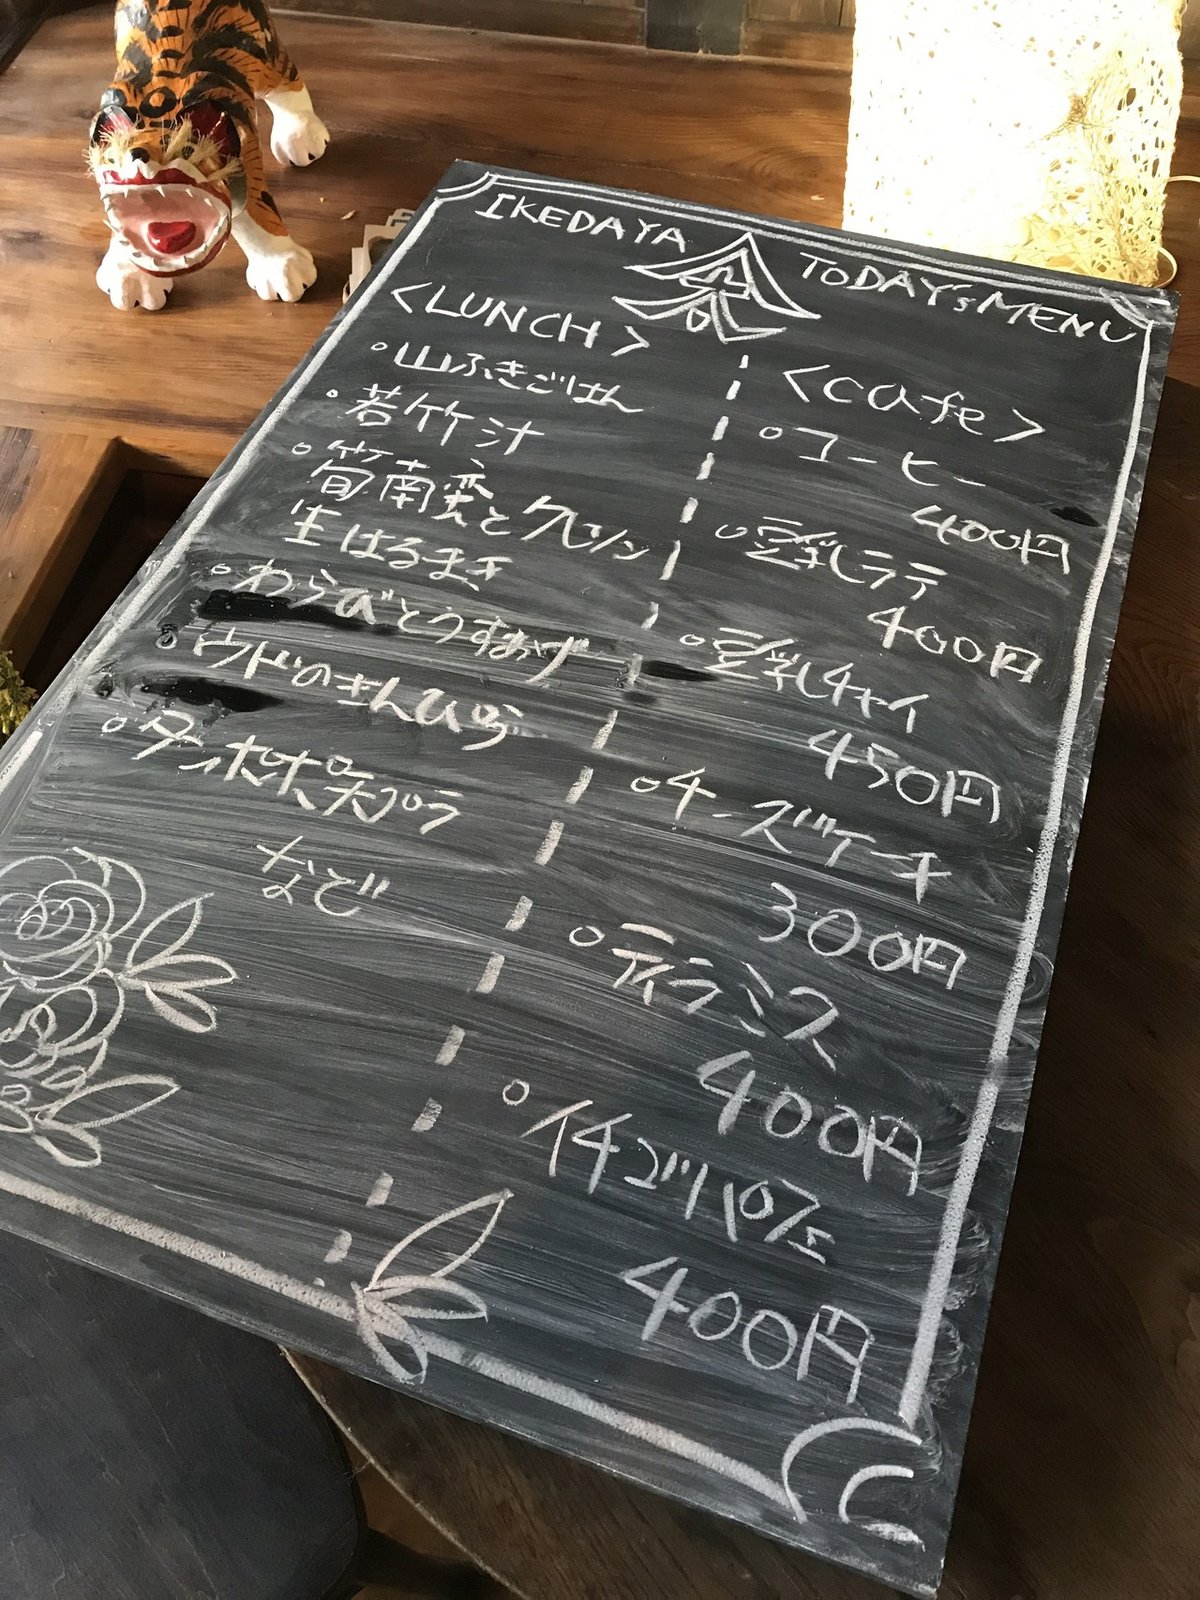 IKEDAYA TODAY'S MENU
<LUNCH>
山ふきごはん
若竹汁
筍、南蛮とクレソン
生はるまき
わらびとうすあげ
ウドのきんぴら
タンポポ天プラ
など
<cafe>
コーヒー
400円
豆乳ラテ
400円
豆乳チャイ
450円
チーズケーキ
300円
ティラミス
400円
イチゴパフェ
400円